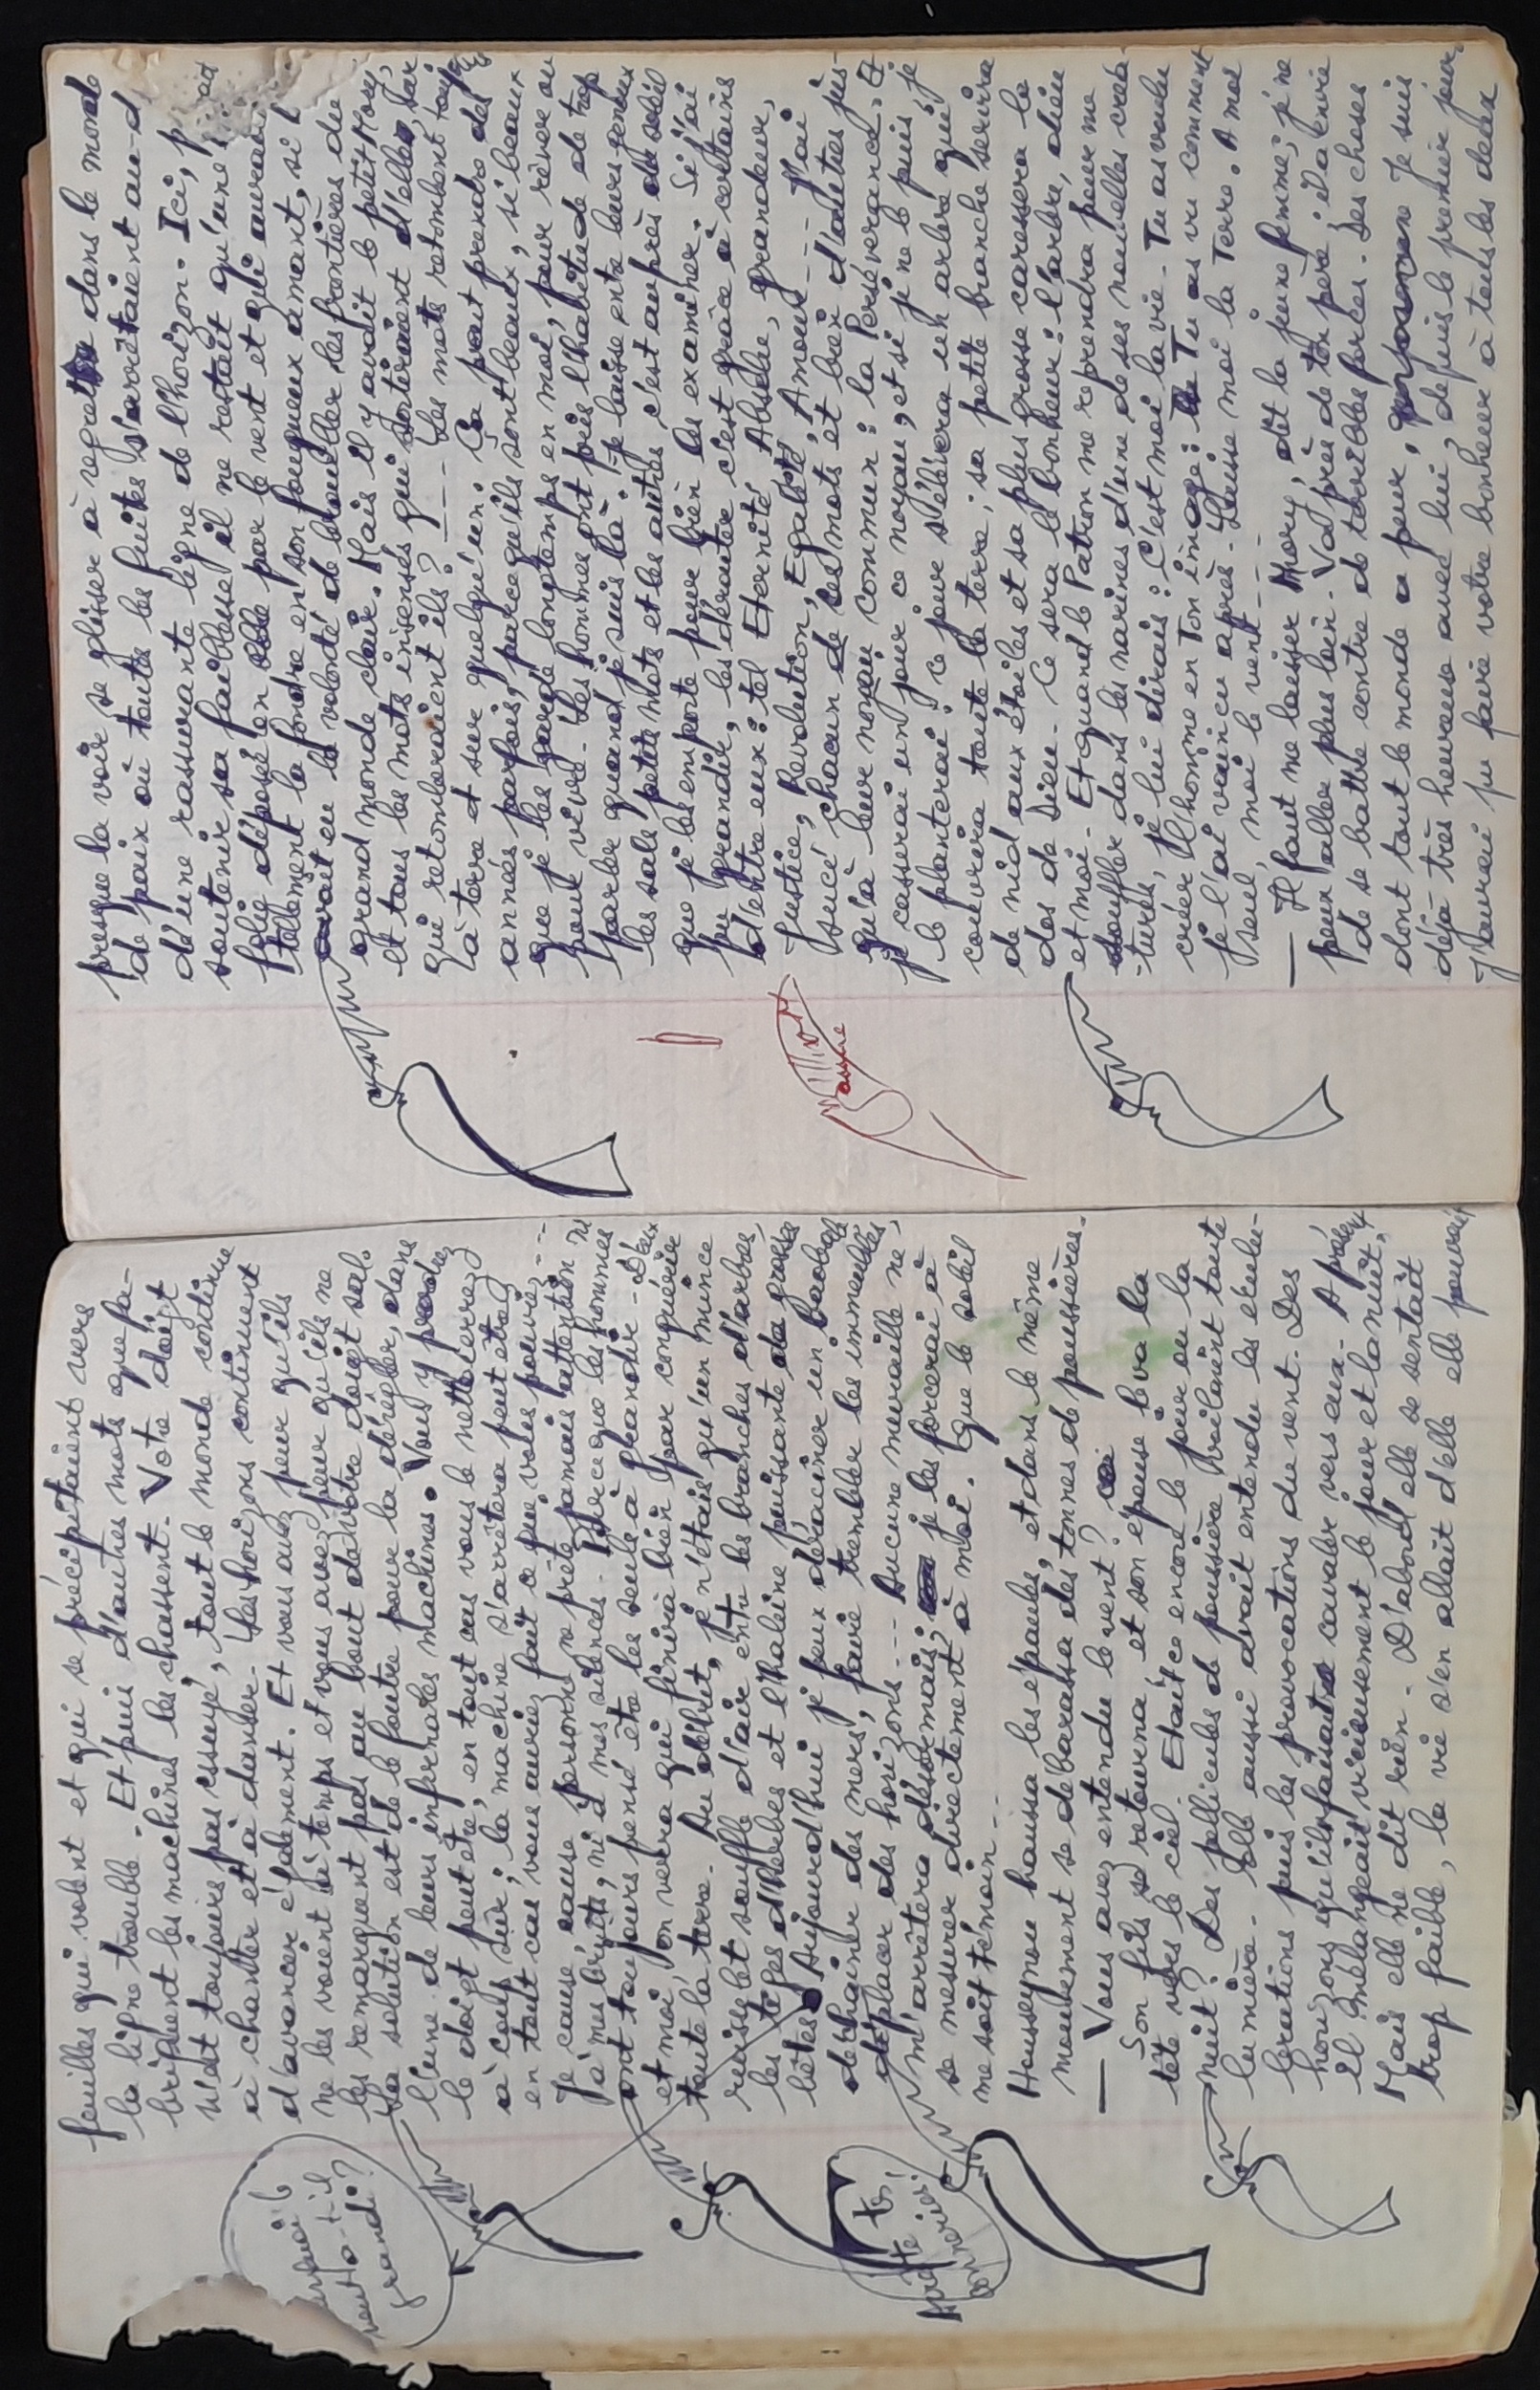 feuilles qui volent et qui se précipitaient vers
la ligne trouble. Et puis d'autres mots que fa-
briquent les machines les chassent. Votre doigt
n'est toujours pas essuyé, tout le monde continue
à chanter et à danser. Les horizons continuent
d'avancer également. Et vous avez peur qu'ils
ne les voient à temps et vous avez peur qu'ils ne
les remarquent pas au bout de votre doigt sale.
La solution est de le foutre pour la dérégler, dans
l'une de leurs infernales machines. Vous y perdrez
le doigt peut être, en tout cas vous le nettoierrez
à coup sûr; la machine s'arrêtera peut être,
en tout cas vous aurez fait ce que vous pouviez ---
Je cause, cause, personne ne prête jamais attention ni
à mes bruits, ni à mes silences. Parce que les hommes
ont toujours pensé être les seuls à grandir. D'eux
et moi, on verra qui finira bien par conquérir
toute la terre. Au début, je n'étais qu'un mince
ruisselet souffle d'air entre les branches d'arbres,
les tiges d'herbes et l'haleine puissante de grosses
bêtes. Aujourd'hui je peux déraciner un baobab,
déchainer des mers, faire trembler les immeubles,
déplacer des horizons --- Aucune muraille ne
m'arrêtera désormais; je les forcerai à
se mesurer directement à moi. Que le soleil
me soit témoin --
Housseynou haussa les épaules, et dans le même
mouvement se débarassa des tonnes de poussières.
— Vous avez entendu le vent?
Son fils se retourna, et son épouse leva la
tête vers le ciel. Etait ce encore le jour ou la
nuit? Des pellicules de poussière voilaient toute
lumière. Elle aussi avait entendu les élucu-
brations puis les provocations du vent. Des
horizons qu'ils faisaient cavaler vers eux. A présent
il mélangeait vicieusement le jour et la nuit.
Mais elle ne dit rien. D'abord elle se sentait
trop faible, la vie s'en allait d'elle elle pouvait
le
veut-il
grandir?
Arrête tes
conneries!
presque la voir se glisser à regret dans le monde
de paix où toutes les fuites s'arrêtaient au-d
d'une rassurante ligne de l'horizon. Ici, p
soutenir sa faiblesse il ne restait qu'une
folie déposée en elle par le vent et qui aurait
tellement la fondre en son fougueux amant, si l
avait eu la volonté de brouiller les frontières du
grand monde clair. Mais il y avait le petit Mory,
et tous les mots insensés qui sortiraient d'elle, sur
qui retomberaient ils? --- Les mots retombent toujours
à terre et sur quelqu'un. Ca peut prendre des
années parfois, parce qu'ils sont beaux, si beaux
que je les garde longtemps en moi, pour rêver ou
pour vivre. Les hommes ont pris l'habitude de trop
parler quand je suis là: je laisse entre leurs genoux
les sales petits mots et les autres c'est auprès du soleil
que je les emporte pour bien les examiner. Si j'ai
pu grandir, les dérouter c'est grâce à certains
d'entre eux: tel Eternité, Absolu, grandeur,
justice, Révolution, Egalité, Amour --- J'ai
sucé chacun de ces mots et bien d'autres jus-
qu'à leur noyau commun: la Persévérance. Et
je casserai un jour ce noyau, et si je ne le puis, je
le planterai: ce jour s'élèvera un arbre qui
couvrira toute la terre; sa petite branche servira
de nid aux étoiles et sa plus grosse caressera le
dos de Dieu. Ce sera le bonheur: l'arbre, dieu
et moi. Et quand le Patron me reprendra pour me
souffler dans les narines d'une de ses nouvelles créa-
-tures, je lui dirais: C'est moi la vie. Tu as voulu
créer l'homme en Ton image: Tu as vu comment
je l'ai vaincu après. Laisse moi la Terre. A moi
seul, moi le vent ---
— Il faut me laisser Mory, dit la jeune femme; je ne
peux aller plus loin. Va près de ton père; il a envie
de se battre contre de terribles forces. Des choses
dont tout le monde a peur, Je suis
déjà très heureuse avec lui, depuis le premier jour
J'aurai pu faire votre bonheur à tous les deux